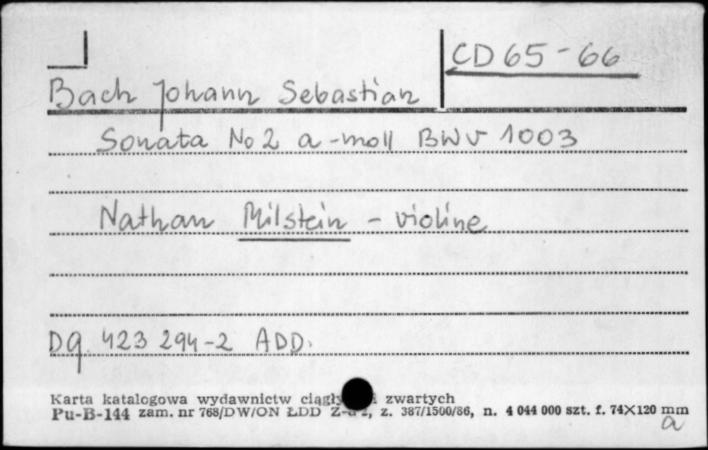 CD 65 - 66
Bach Johann Sebastian
Sonata No 2 a-moll BWV 1003
Nathan Milstein - violine
DG. 423 294-2 ADD.
Karta katalogowa wydawnictw zwartych
Pu-B-144 zam. nr 768/DW/ON ŁDD z. 387/1500/86, n. 4 044 000 szt. f. 74X120 mm
a